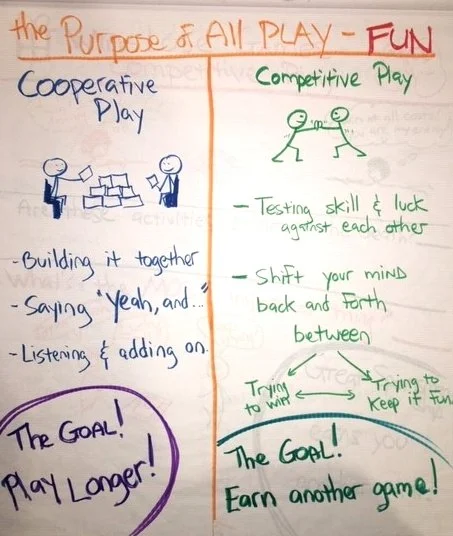 the Purpose of All PLAY - FUN
Cooperative
Play
- Building it together
- Saying "Yeah, and..."
- Listening & adding on.
The GOAL!
Play Longer!
Competitive Play
- Testing skill & luck
against each other
- Shift your mind
back and forth
between
Trying
to win
Trying to
keep it fun
The GOAL!
Earn another game!